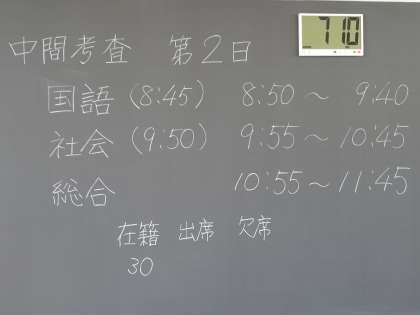 中間考査 第2日
7 10
国語 (8:45) 8:50～9:40
社会 (9:50) 9:55～10:45
総合 10:55～11:45
在籍 出席 欠席
30